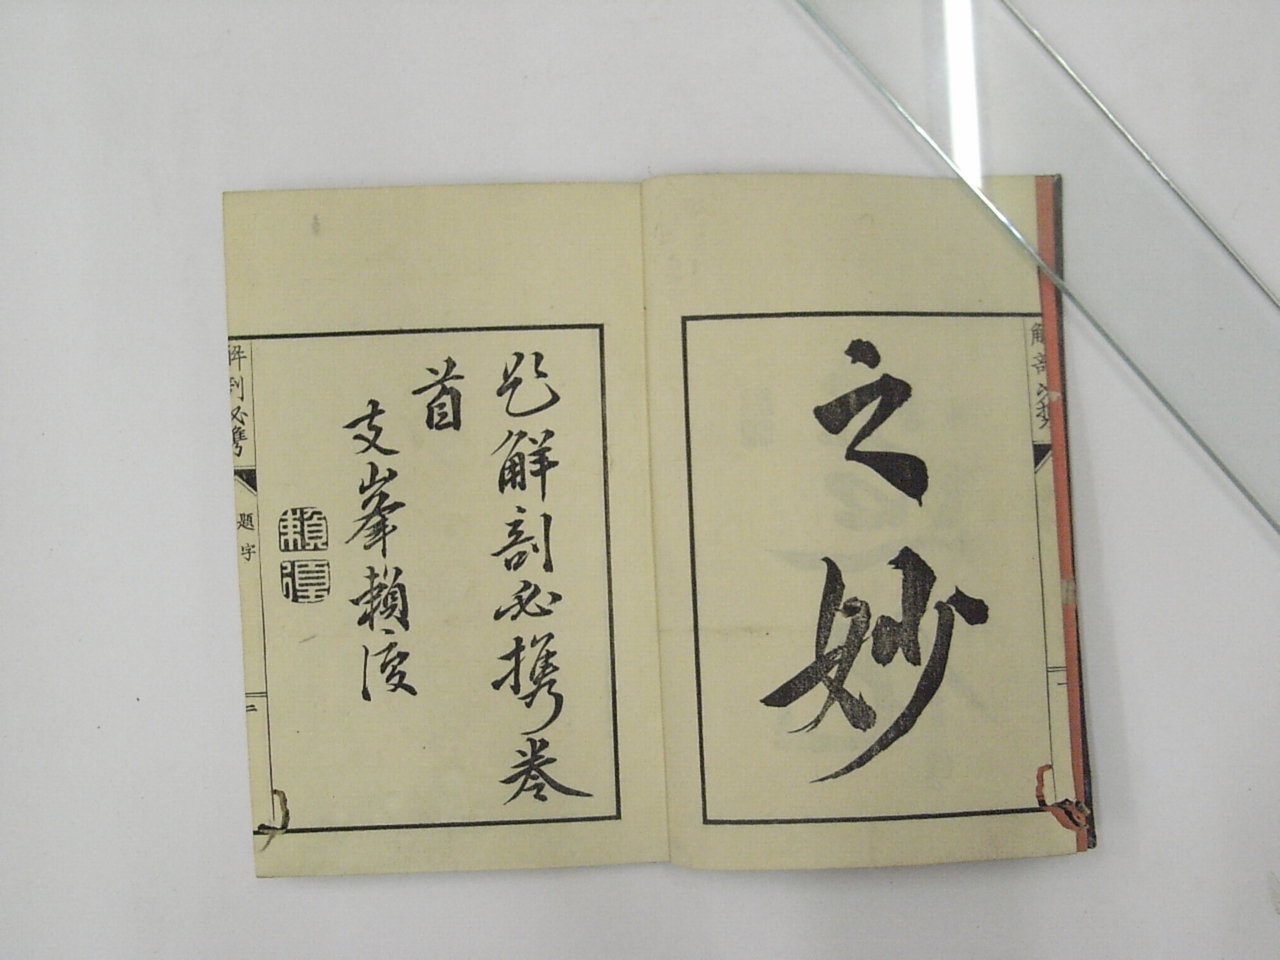 之妙
題解剖必携巻
首
支峯頼復
頼復
解剖必携
題字
二